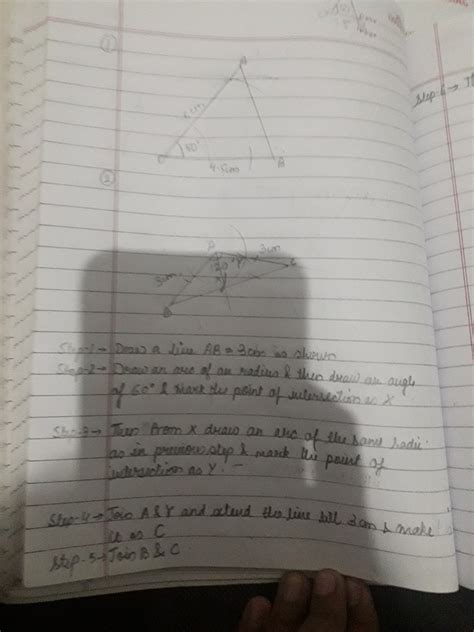 ①
A
6cm
50°
C
4.5cm
B
Step-6→
②
A
3cm
3cm
120
C
B
Step-1→ Draw a line AB = 3cm as shown
Step-2→ Draw an arc of an radius & then draw an angle
of 60° & mark the point of intersection as X
Step-3→ Then from X draw an arc of the same radi
as in previous step & mark the point of
intersection as Y.
Step-4→ Join A & Y and extend the line till 3cm & make
it as C
Step-5→ Join B & C